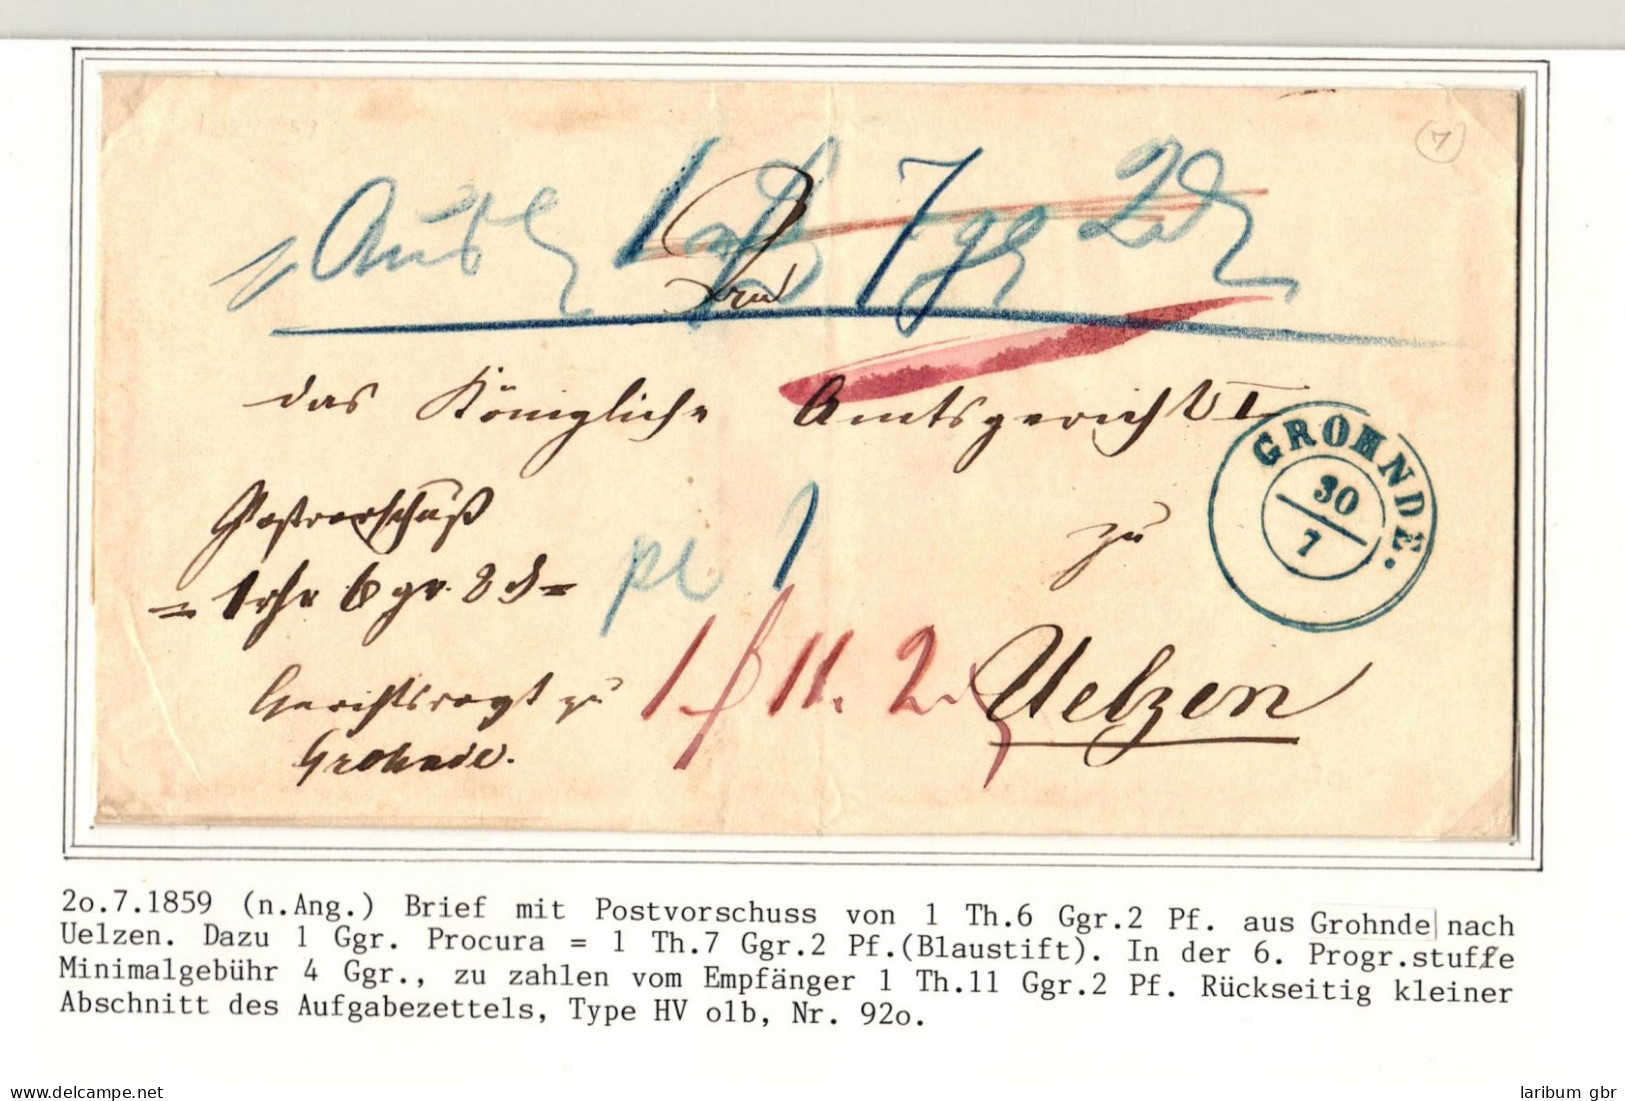 (7)
1 rℓ 7 ggr 2 ₰
An
das Königliche Amtsgericht I
GROHNDE.
30
7
Postvorschuß
zu
= 1 rthr 6 gr. 2 ₰ =
pc 1
1 f 11. 2 ₰
Uelzen
Gerichtsvogt zu
Grohnde.
2o.7.1859 (n.Ang.) Brief mit Postvorschuss von 1 Th.6 Ggr.2 Pf. aus Grohnde nach
Uelzen. Dazu 1 Ggr. Procura = 1 Th.7 Ggr.2 Pf.(Blaustift). In der 6. Progr.stuffe
Minimalgebühr 4 Ggr., zu zahlen vom Empfänger 1 Th.11 Ggr.2 Pf. Rückseitig kleiner
Abschnitt des Aufgabezettels, Type HV olb, Nr. 92o.
www.delcampe.net
laribum gbr